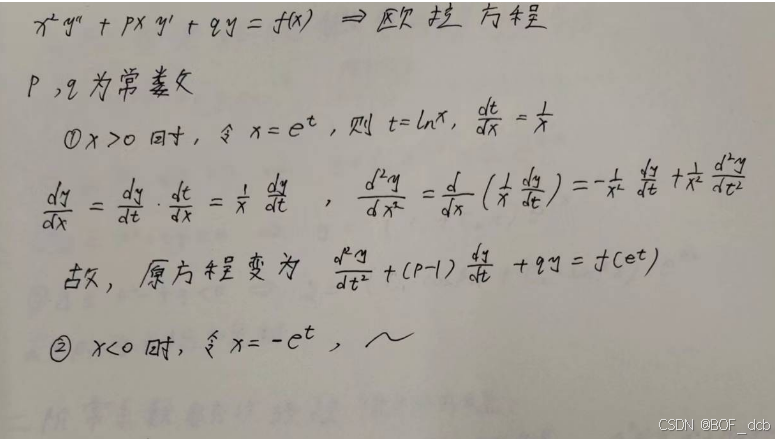 x²y" + pxy' + qy = f(x) ⇒ 欧拉方程
p,q为常数
①x>0时，令x=e^t，则t=ln^x，dt/dx = 1/x
dy/dx = dy/dt · dt/dx = 1/x dy/dt，d²y/dx² = d/dx (1/x dy/dt) = -1/x² dy/dt + 1/x² d²y/dt²
故，原方程变为 d²y/dt² + (p-1) dy/dt + qy = f(e^t)
② x<0时，令x=-e^t，～
CSDN @BOF_dcb